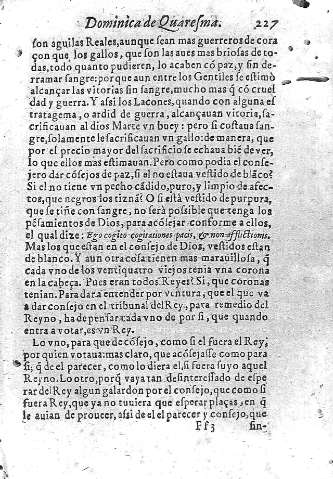 Dominica de Quaresma. 227
son aguilas Reales, aunque sean mas guerreros de cora
çon que los gallos, que son las aues mas briosas de to-
das, todo quanto pudieren, lo acaben cõ paz, y sin de-
rramar sangre: por que aun entre los Gentiles se estimò
alcançar las vitorias sin sangre, mucho mas q̃ cõ cruel
dad y guerra. Y assi los Lacones, quando con alguna es
tratagema, o ardid de guerra, alcançauan vitoria, sa-
crificauan al dios Marte vn buey: pero si costaua san-
gre, solamente le sacrificauan vn gallo: de manera, que
por el precio mayor del sacrificio se echaua biẽ de ver,
lo que ellos mas estimauan. Pero como podia el conse-
jero dar cõsejos de paz, si el no estaua vestido de blãco?
Si el no tiene vn pecho cãdido, puro, y limpio de afec-
tos, que negros los tiznã? O si està vestido de purpura,
que se tiñe con sangre, no serà possible que tenga los
pẽsamientos de Dios, para acõsejar conforme a ellos,
el qual dize: Ego cogito cogitationes pacis, & non afflictionis.
Mas los que estan en el consejo de Dios, vestidos estan
de blanco. Y aun otra cosa tienen mas marauillosa, q̃
cada vno de los ventiquatro viejos tenia vna corona
en la cabeça. Pues eran todos Reyes? Si, que coronas
tenian. Para dar a entender por ventura, que el que va
a dar consejo en el tribunal del Rey, para remedio del
Reyno, ha de pensar cada vno de por si, que quando
entra a votar, es vn Rey.
Lo vno, para que de cõsejo, como si el fuera el Rey,
por quien votaua: mas claro, que acõsejasse como para
si, q̃ de el parecer, como lo diera el, si fuera suyo aquel
Reyno. Lo otro, porq̃ vaya tan desinteressado de espe
rar del Rey algun galardon por el consejo, que como si
fuera Rey, que ya no tuuiera que esperar plaças, en q̃
le auian de proueer, assi de el el parecer y consejo, que
Ff3 sin-